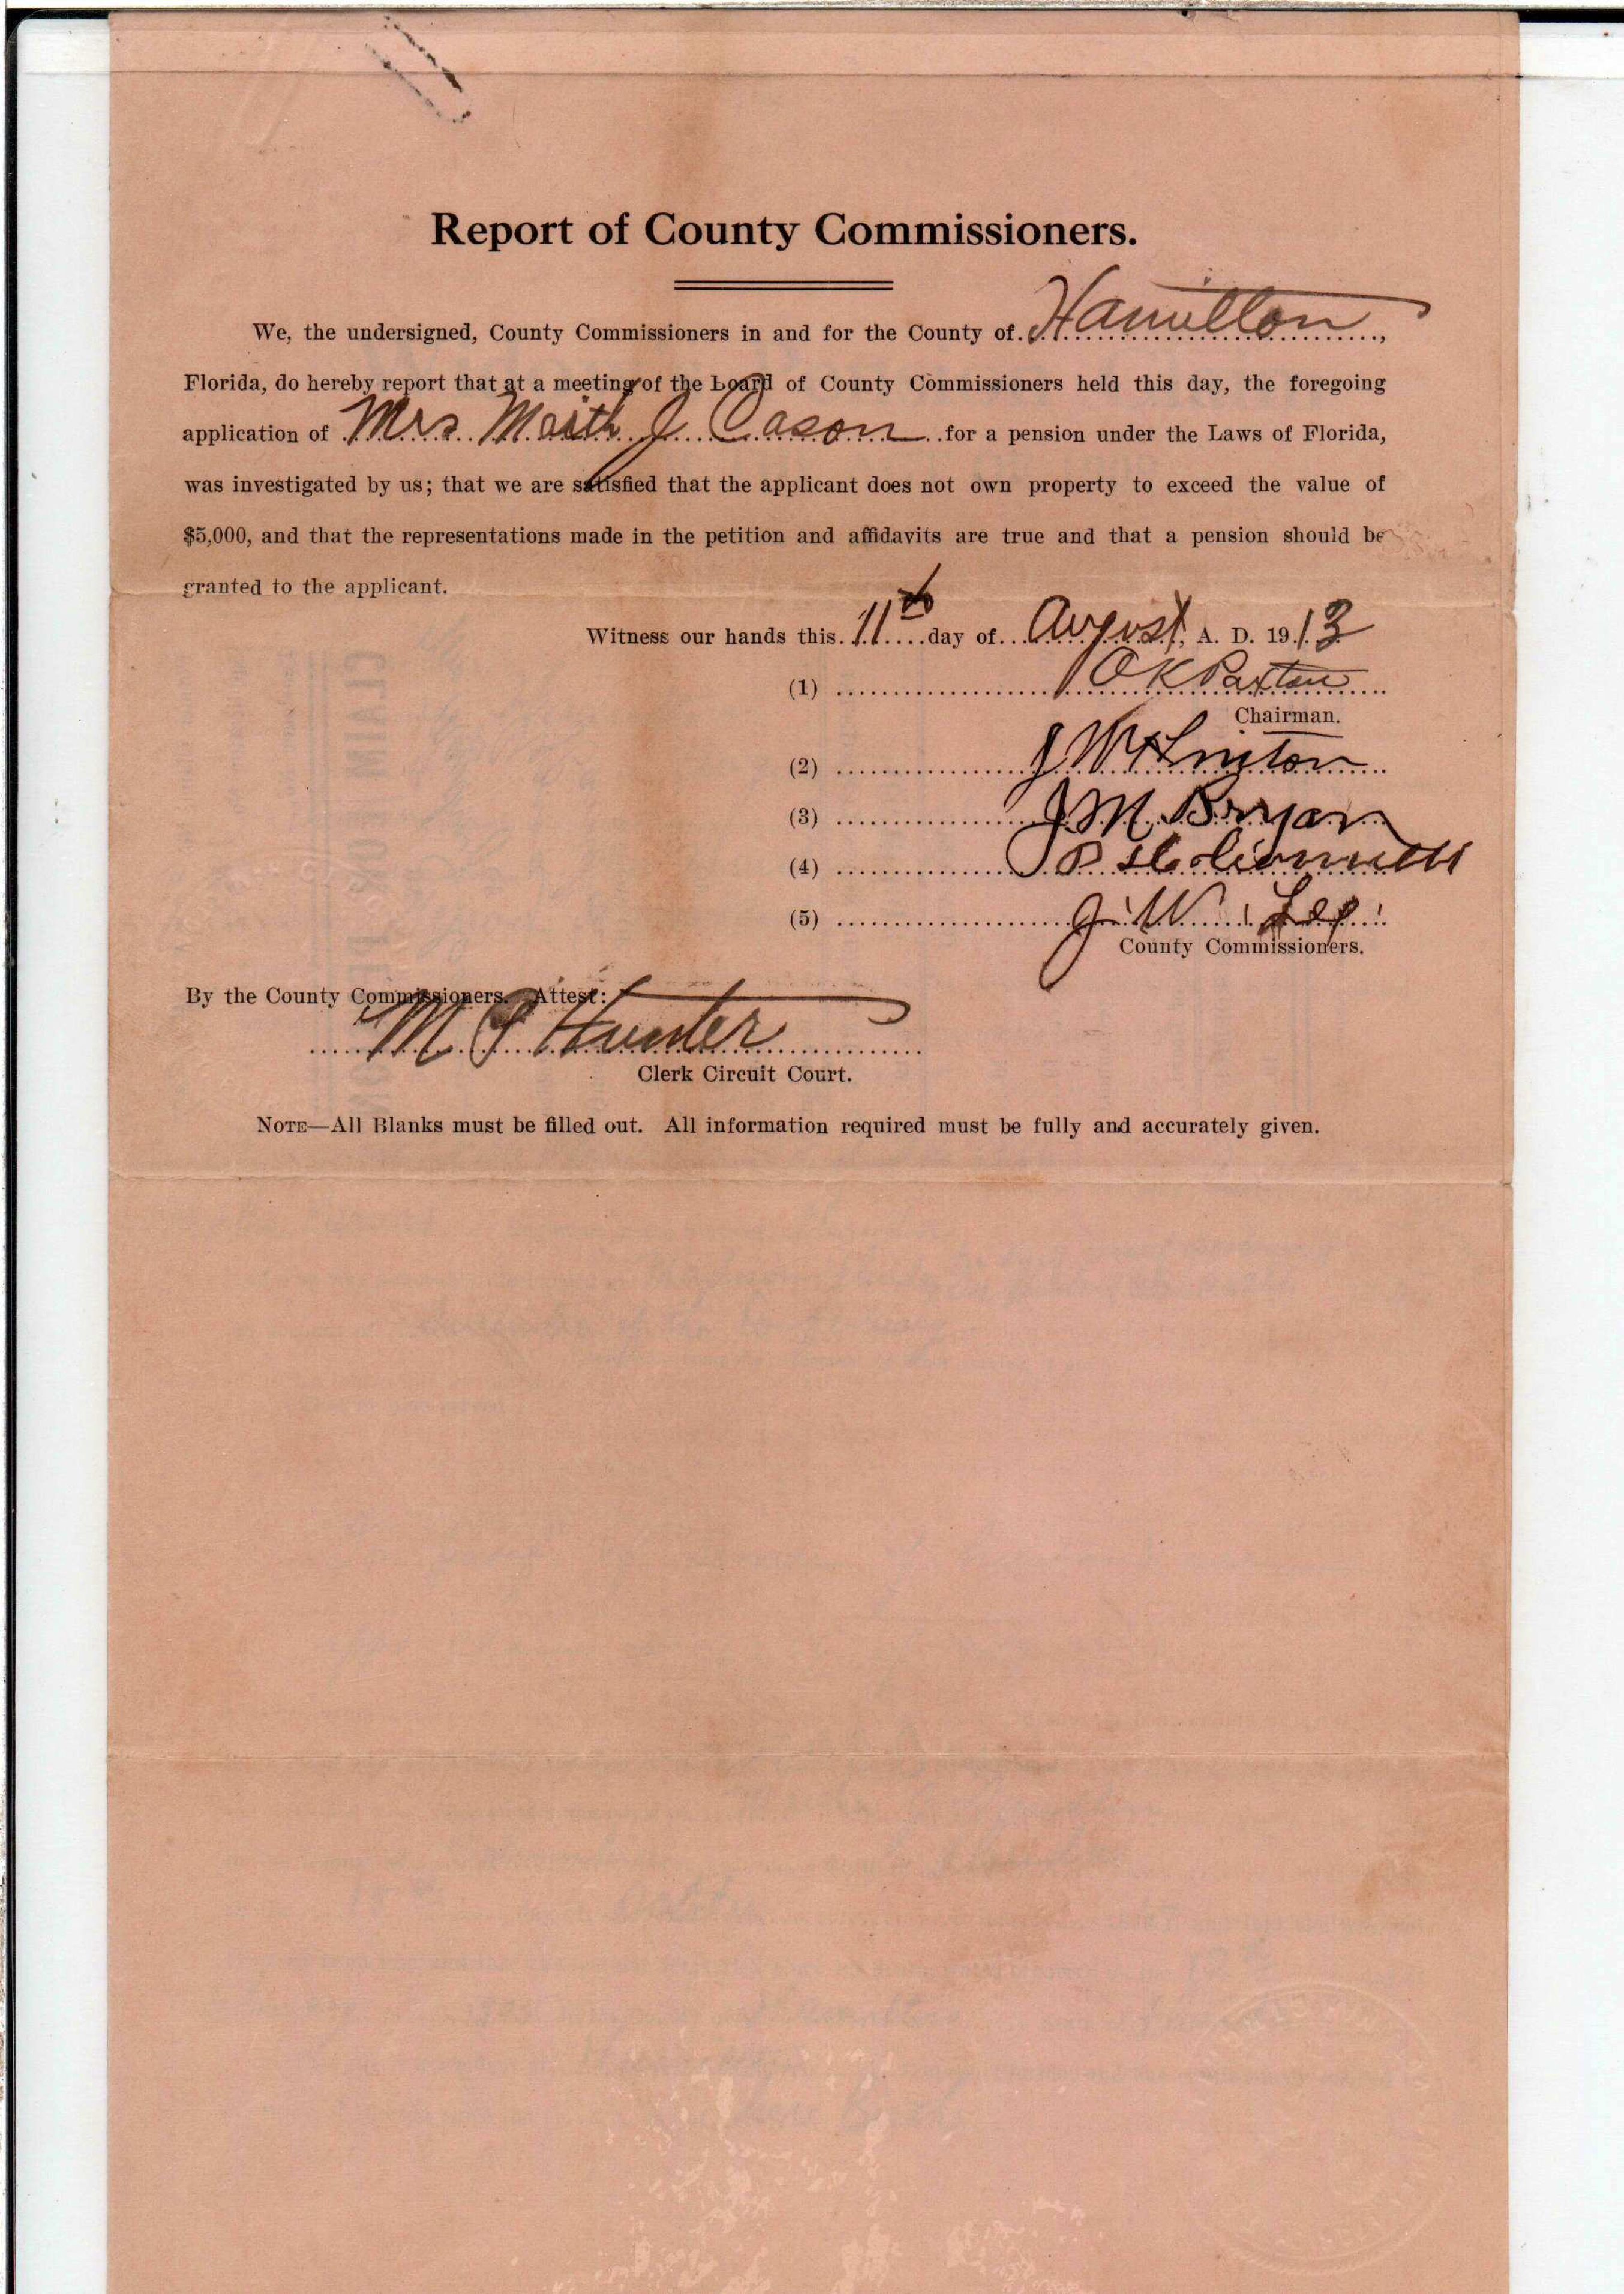 Report of County Commissioners.
We, the undersigned, County Commissioners in and for the County of Hamilton,
Florida, do hereby report that at a meeting of the board of County Commissioners held this day, the foregoing
application of Mrs J. Cason for a pension under the Laws of Florida,
was investigated by us; that we are satisfied that the applicant does not own property to exceed the value of
$5,000, and that the representations made in the petition and affidavits are true and that a pension should be
granted to the applicant.
Witness our hands this 11th day of August, A. D. 1913
(1) O K Paxton
Chairman.
(2) J W Linton
(3) J M Bryan
(4)
(5) J. W. Lee
County Commissioners.
By the County Commissioners. Attest:
M Hunter
Clerk Circuit Court.
NOTE—All Blanks must be filled out. All information required must be fully and accurately given.